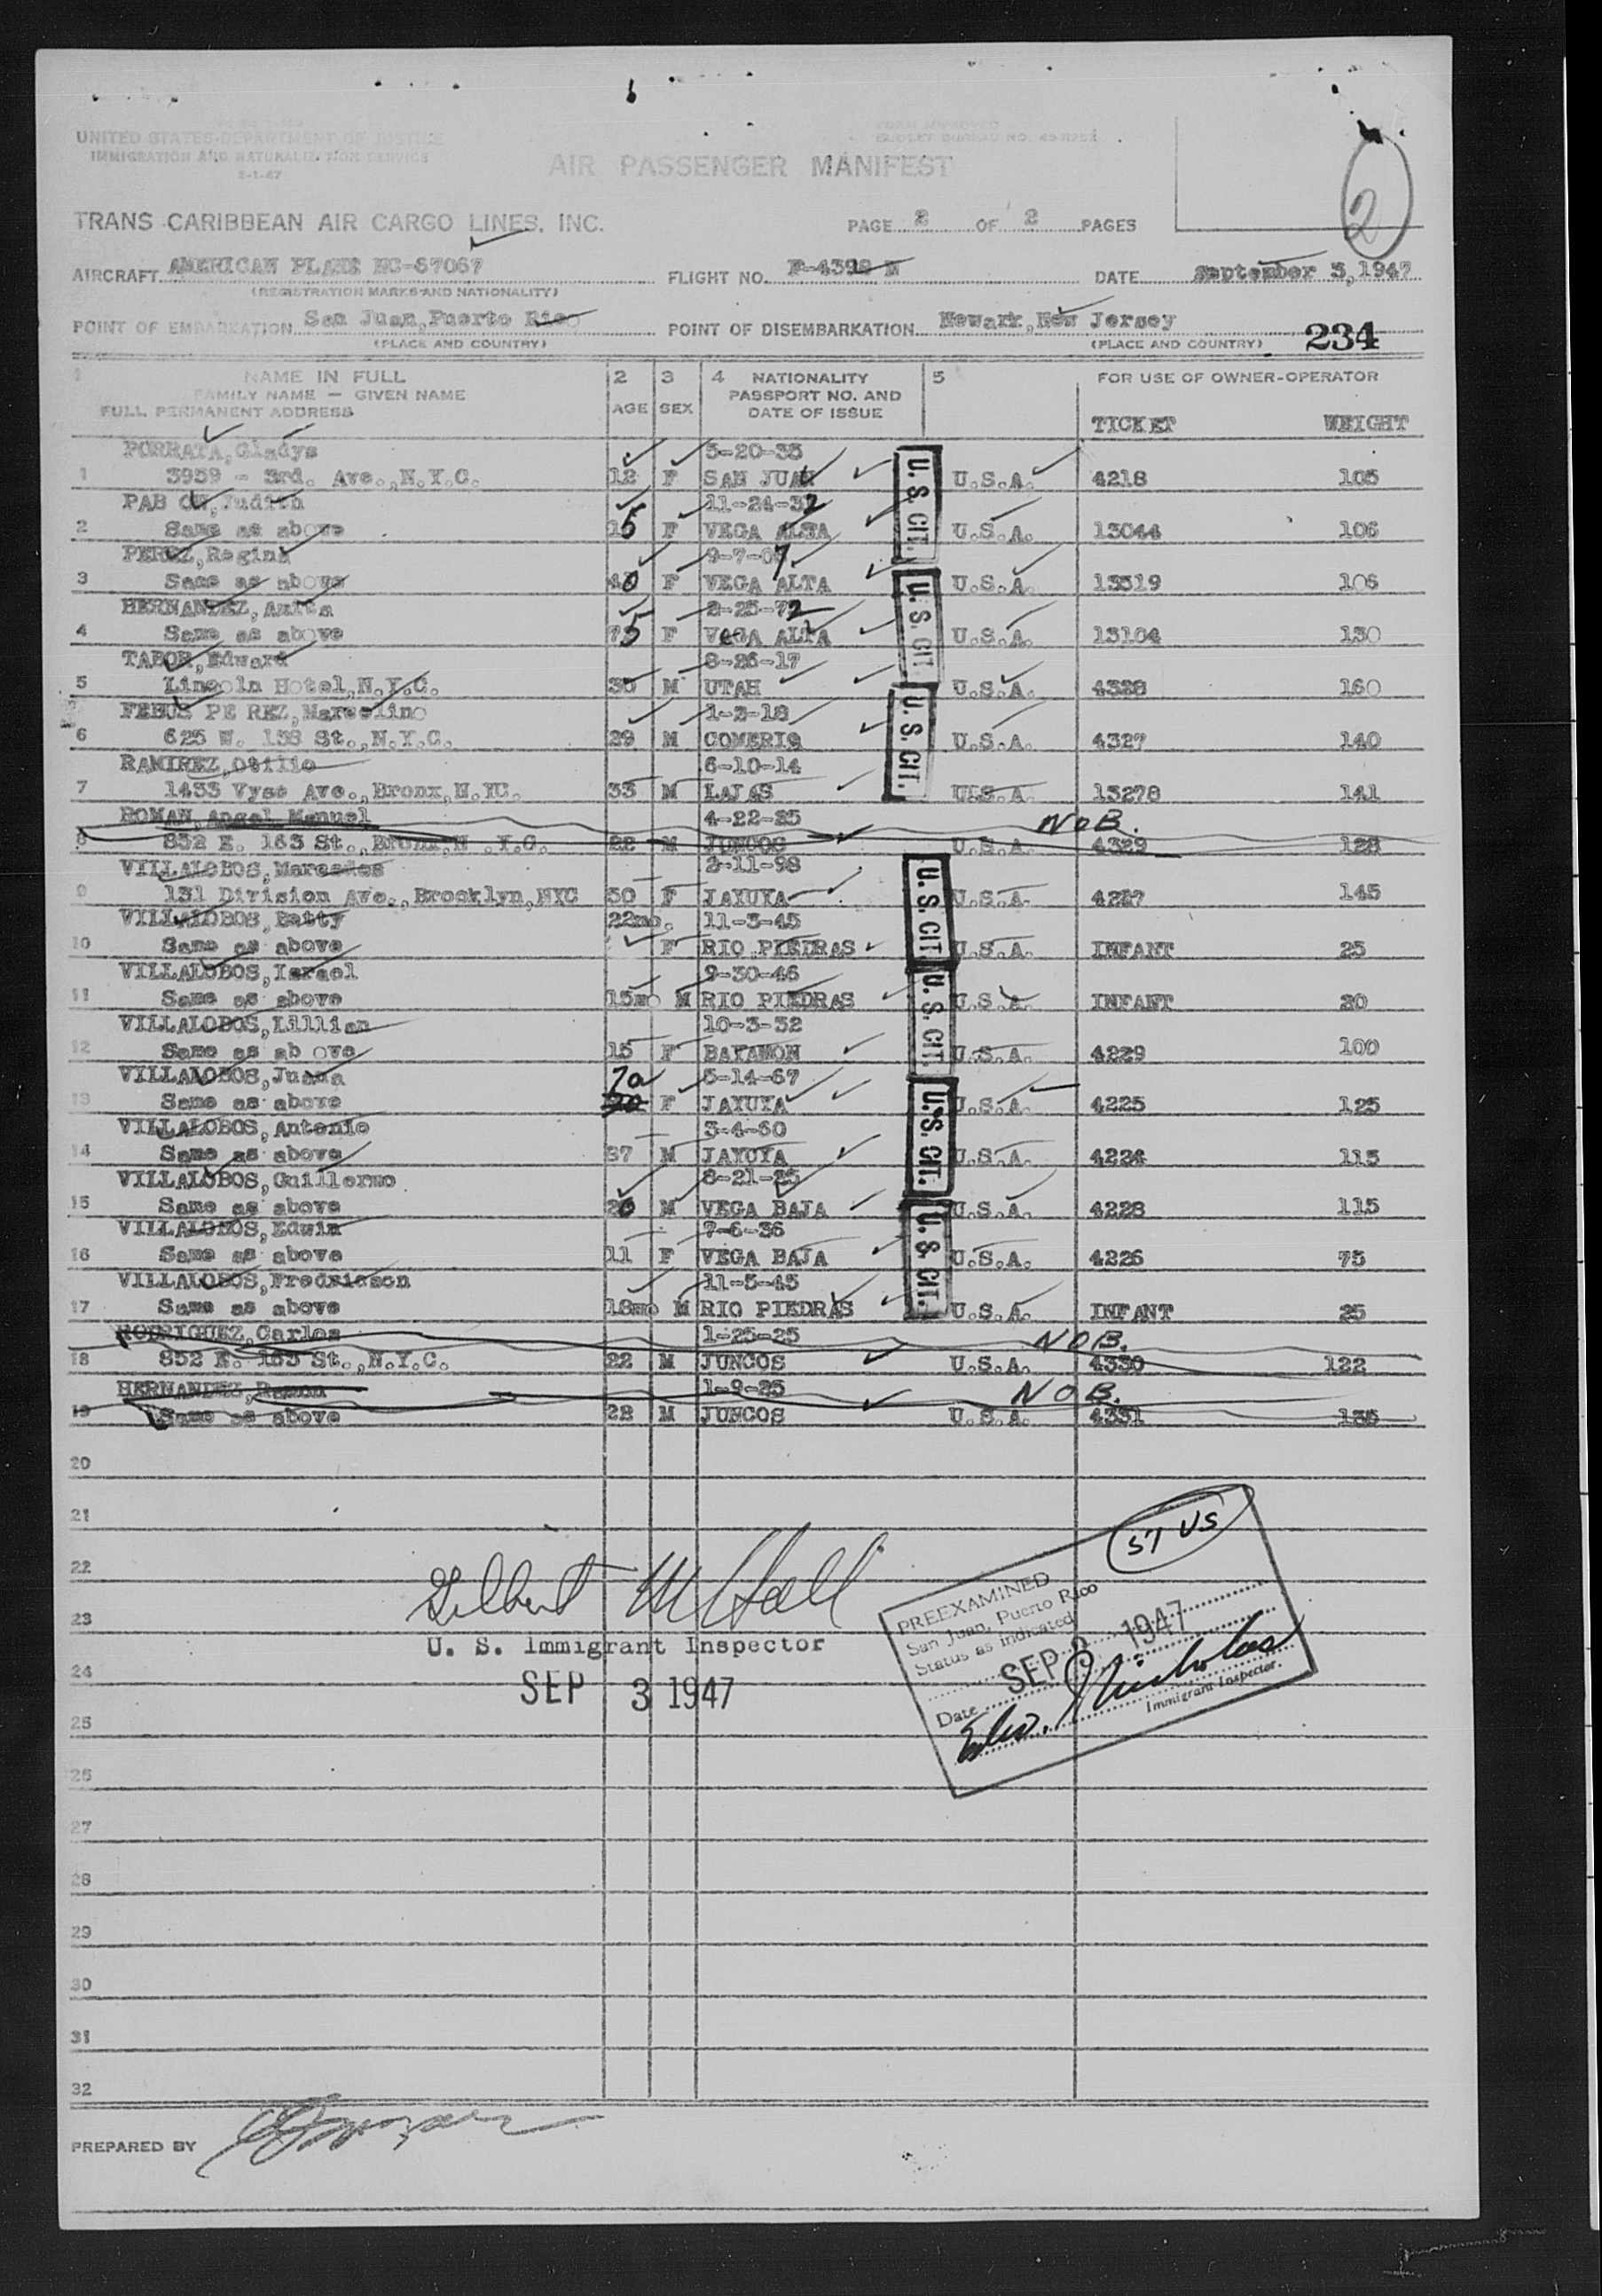 UNITED STATES DEPARTMENT OF JUSTICE
IMMIGRATION AND NATURALIZATION SERVICE
FORM APPROVED
BUDGET BUREAU NO.
AIR PASSENGER MANIFEST
2
TRANS CARIBBEAN AIR CARGO LINES, INC.
PAGE 2 OF 2 PAGES
AIRCRAFT AMERICAN PLANE NC-57067 FLIGHT NO. DATE September 3, 1947
(REGISTRATION MARKS AND NATIONALITY)
POINT OF EMBARKATION San Juan, Puerto Rico POINT OF DISEMBARKATION Newark, New Jersey
(PLACE AND COUNTRY) (PLACE AND COUNTRY) 234
1 NAME IN FULL 2 3 4 NATIONALITY 5 FOR USE OF OWNER-OPERATOR
FAMILY NAME — GIVEN NAME PASSPORT NO. AND
FULL PERMANENT ADDRESS AGE SEX DATE OF ISSUE TICKET WEIGHT
PORRATA, Gladys 5-20-35
1 3959 - 3rd. Ave., N.Y.C. 12 F SAN JUAN U.S.A. 4218 105
PAB ON, Judith 11-24-32
2 Same as above 15 F VEGA ALTA U.S.A. 13044 106
PEREZ, Regina 9-7-07
3 Same as above 40 F VEGA ALTA U.S.A. 13519 106
HERNANDEZ, Anita 2-25-72
4 Same as above 75 F VEGA ALTA U.S.A. 13104 130
TABOR, Edward 8-26-17
5 Lincoln Hotel, N.Y.C. 30 M UTAH U.S.A. 4328 160
FEBUS PE REZ, Marcelino 1-3-18
6 625 W. 138 St., N.Y.C. 29 M COMERIO U.S.A. 4327 140
RAMIREZ, Otilio 6-10-14
7 1433 Vyse Ave., Bronx, N.YC. 33 M LAJAS U.S.A. 13278 141
ROMAN, Angel Manuel 4-22-25 NOB.
8 852 E. 163 St., Bronx, N .Y.C. 22 M JUNCOS U.S.A. 4329 128
VILLALOBOS, Mercedes 2-11-98
9 131 Division Ave., Brooklyn, NYC 50 F JAYUYA U.S.A. 4227 145
VILLALOBOS, Betty 22mo. 11-3-45
10 Same as above F RIO PIEDRAS U.S.A. INFANT 25
VILLALOBOS, Israel 9-30-46
11 Same as above 15mo M RIO PIEDRAS U.S.A. INFANT 20
VILLALOBOS, Lillian 10-3-32
12 Same as ab ove 15 F BAYAMON U.S.A. 4229 100
VILLALOBOS, Juana 70 5-14-67
13 Same as above F JAYUYA U.S.A. 4225 125
VILLALOBOS, Antonio 3-4-60
14 Same as above 87 M JAYUYA U.S.A. 4224 115
VILLALOBOS, Guillermo 8-21-25
15 Same as above 20 M VEGA BAJA U.S.A. 4228 115
VILLALOBOS, Edwin 7-6-36
16 Same as above 11 F VEGA BAJA U.S.A. 4226 75
VILLALOBOS, Fredricson 11-5-45
17 Same as above 18mo M RIO PIEDRAS U.S.A. INFANT 25
RODRIGUEZ, Carlos 1-25-25 NOB.
18 852 E. 163 St., N.Y.C. 22 M JUNCOS U.S.A. 4330 122
HERNANDEZ, Ramon 1-9-25 NOB.
19 Same as above 22 M JUNCOS U.S.A. 4331 135
U. S. CIT.
U. S. CIT.
U. S. CIT.
U. S. CIT.
U. S. CIT.
U. S. CIT.
U. S. CIT.
20
21
57 US
22
Gilbert M Hall
PREEXAMINED
San Juan, Puerto Rico
Status as indicated
23
U. S. Immigrant Inspector
24
SEP 3 1947
Date SEP 3 1947
Edw. J Nicholas
Immigrant Inspector.
25
26
27
28
29
30
31
32
PREPARED BY